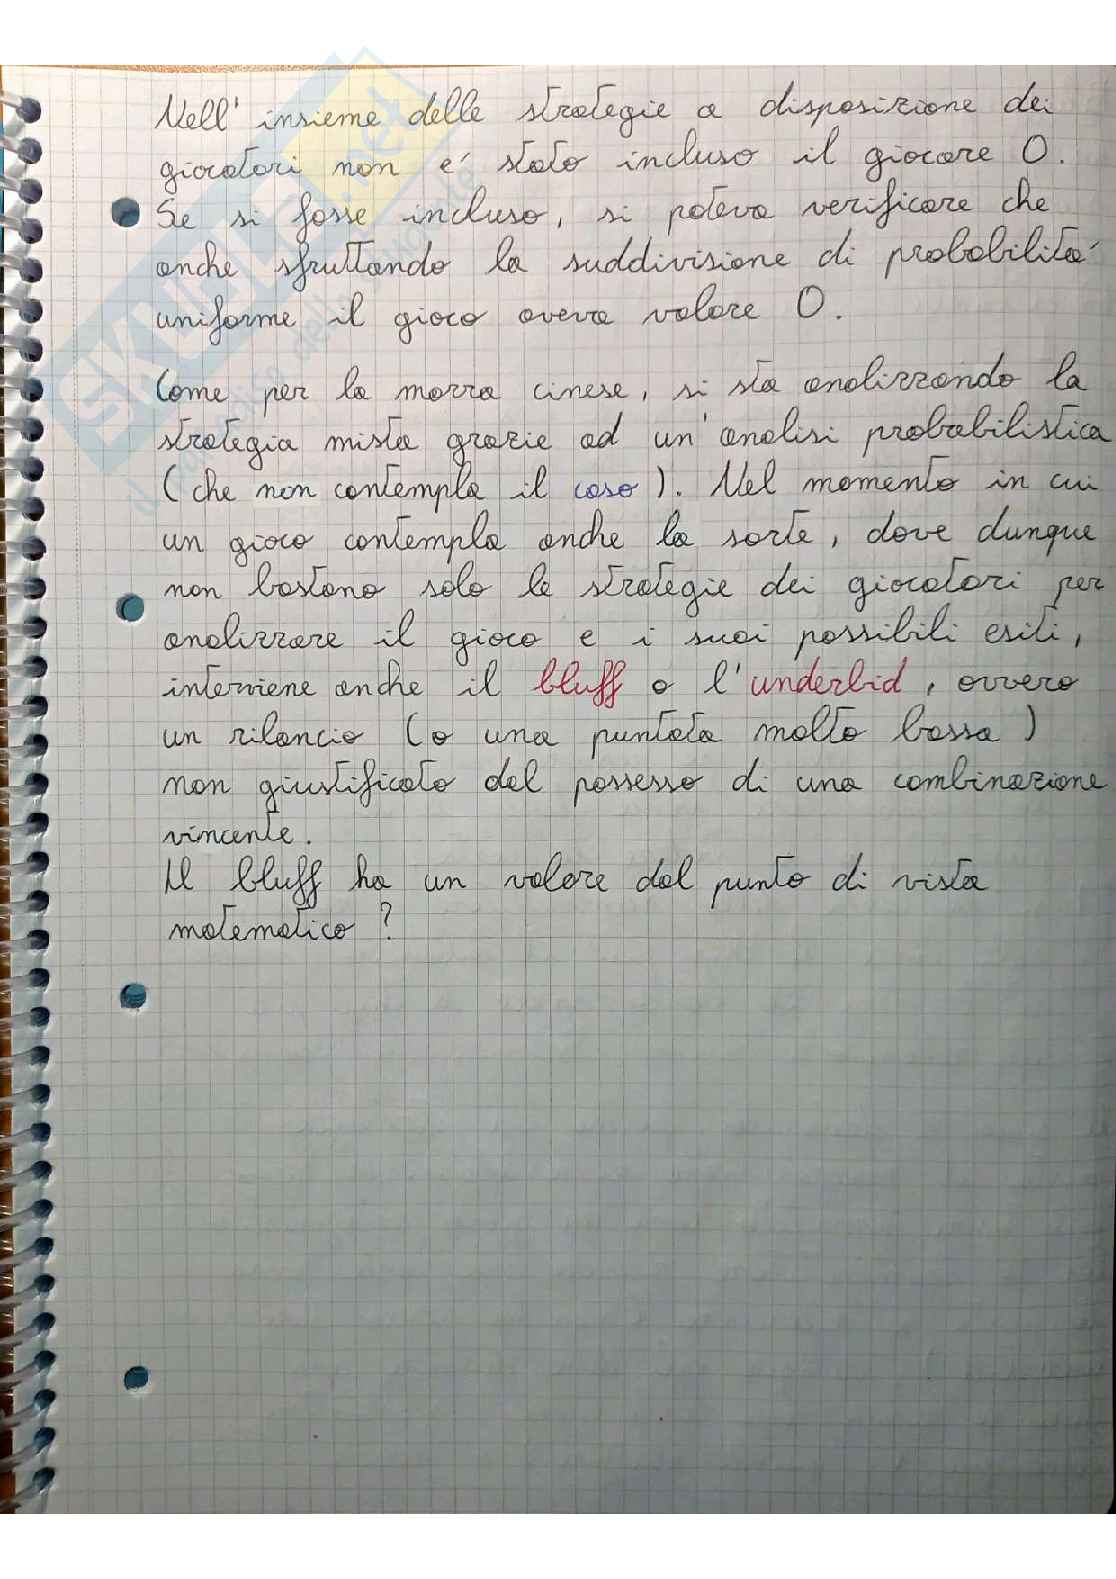 Nell' insieme delle strategie a disposizione dei
giocatori non e' stato incluso il giocare 0.
Se si fosse incluso, si poteva verificare che
anche sfruttando la suddivisione di probabilita'
uniforme il gioco aveva valore 0.
Come per la morra cinese, si sta analizzando la
strategia mista grazie ad un' analisi probabilistica
(che non contempla il caso). Nel momento in cui
un gioco contempla anche la sorte, dove dunque
non bastano solo le strategie dei giocatori per
analizzare il gioco e i suoi possibili esiti,
interviene anche il bluff o l'underbid, ovvero
un rilancio (o una puntata molto bassa)
non giustificato dal possesso di una combinazione
vincente.
Il bluff ha un valore dal punto di vista
matematico?